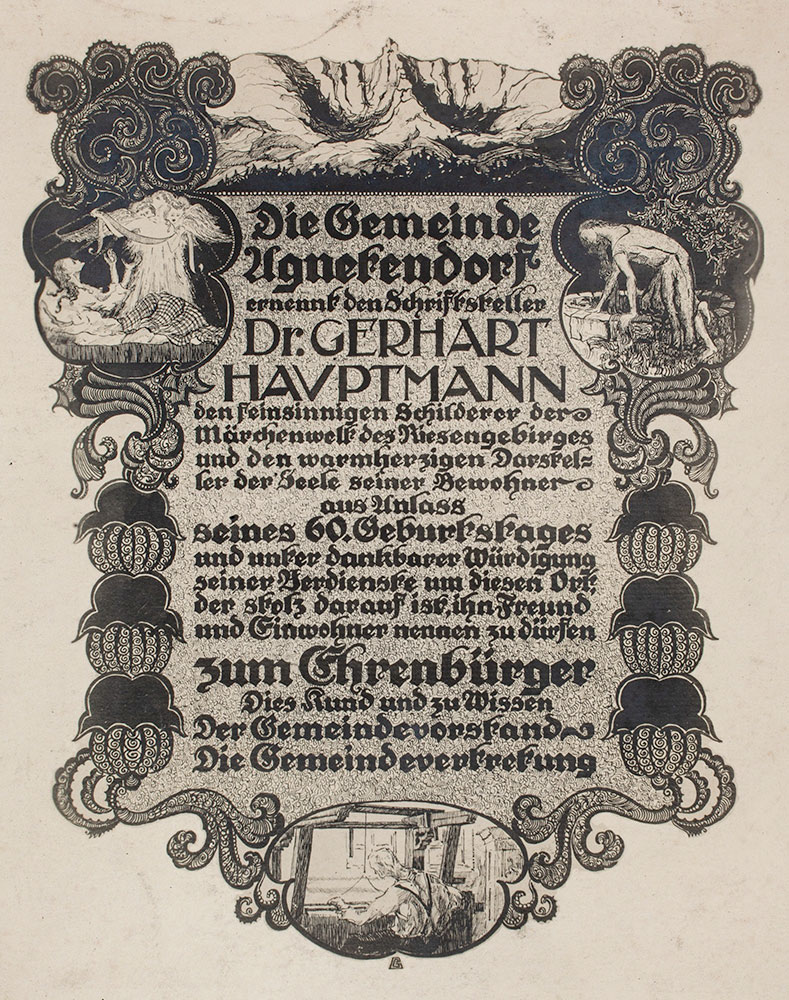 Die Gemeinde
Agnetendorf
ernennt den Schriftsteller
Dr. GERHART
HAVPTMANN
den feinsinnigen Schilderer der
Märchenwelt des Riesengebirges
und den warmherzigen Darstel=
ler der Seele seiner Bewohner
aus Anlass
seines 60. Geburtstages
und unter dankbarer Würdigung
seiner Verdienste um diesen Ort,
der stolz darauf ist, ihn Freund
und Einwohner nennen zu dürfen
zum Ehrenbürger
Dies Kund und zu Wissen
Der Gemeindevorstand
Die Gemeindevertretung